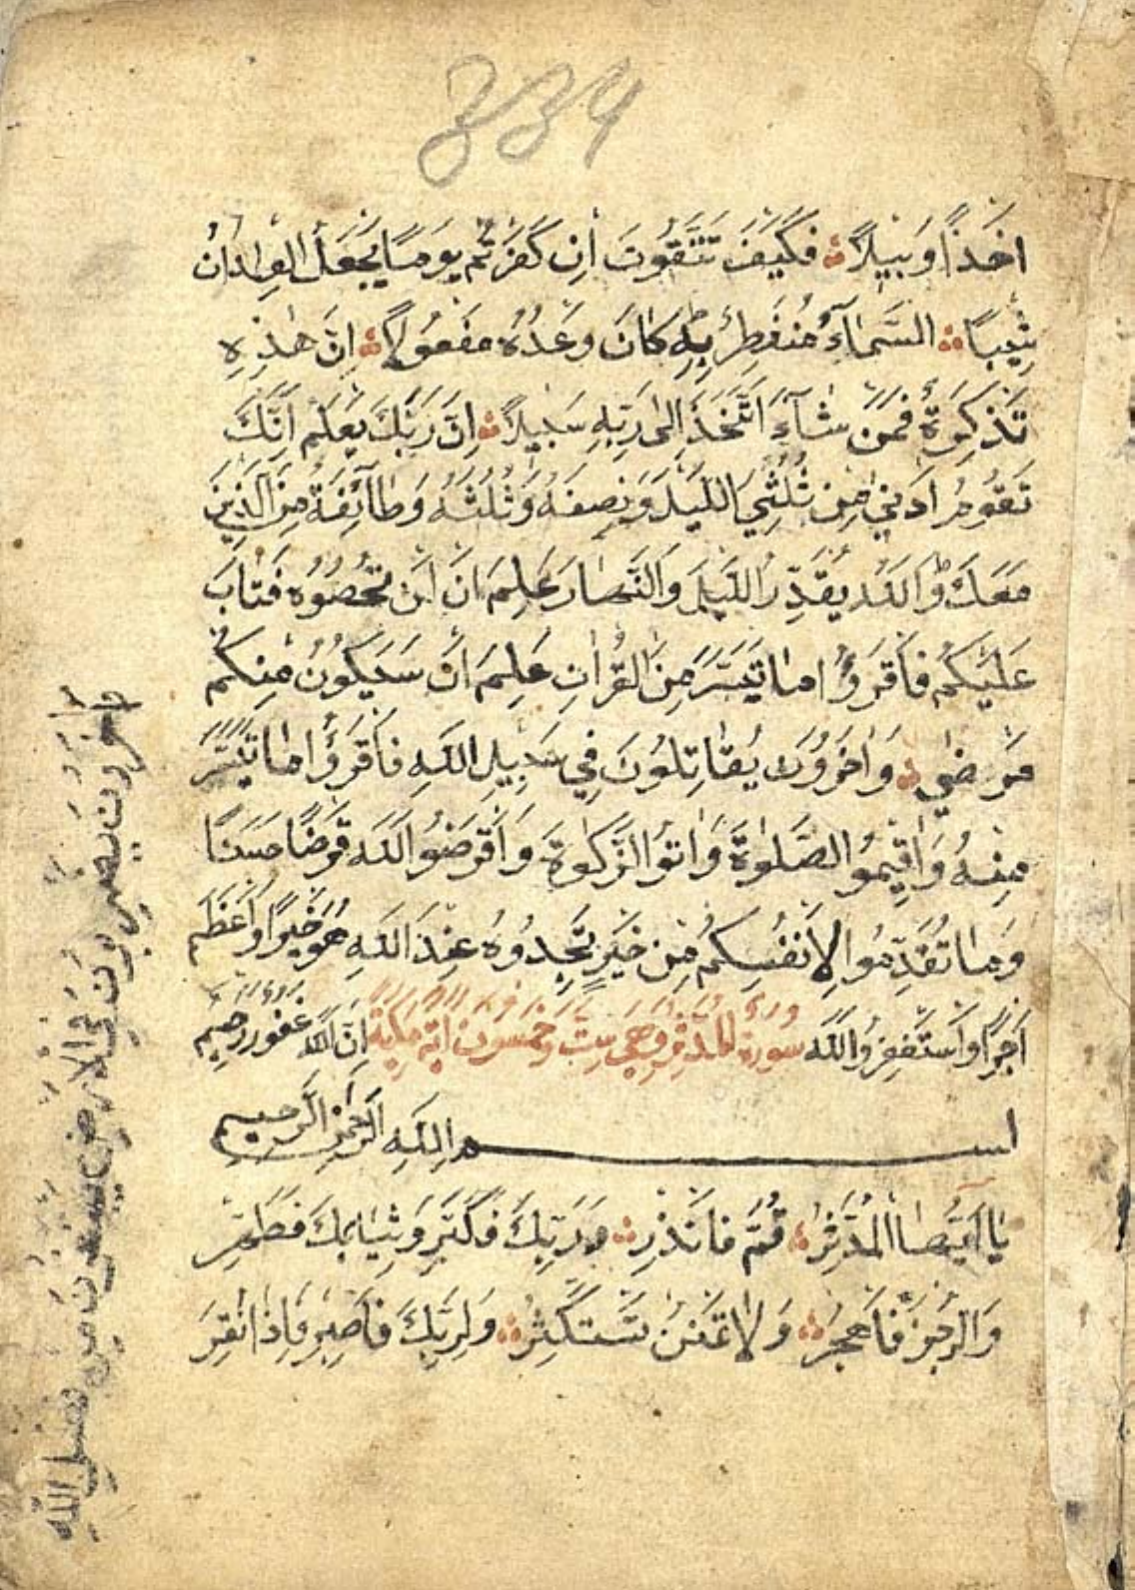 334
اَخْذًا وَبِيلًا فَكَيْفَ تَتَّقُونَ اِنْ كَفَرْتُمْ يَوْمًا يَجْعَلُ الْوِلْدَانَ
شِيْبًا السَّمَآءُ مُنْفَطِرٌ بِهٖ كَانَ وَعْدُهُ مَفْعُولًا اِنَّ هٰذِهِ
تَذْكِرَةٌ فَمَنْ شَآءَ اتَّخَذَ اِلٰى رَبِّهِ سَبِيلًا اِنَّ رَبَّكَ يَعْلَمُ اَنَّكَ
تَقُومُ اَدْنٰى مِنْ ثُلُثَيِ اللَّيْلِ وَنِصْفَهُ وَثُلُثَهُ وَطَآئِفَةٌ مِنَ الَّذِينَ
مَعَكَ وَاللّٰهُ يُقَدِّرُ اللَّيْلَ وَالنَّهَارَ عَلِمَ اَنْ لَنْ تُحْصُوهُ فَتَابَ
عَلَيْكُمْ فَاقْرَؤُا مَا تَيَسَّرَ مِنَ الْقُرْاٰنِ عَلِمَ اَنْ سَيَكُونُ مِنْكُمْ
مَرْضٰى وَاٰخَرُونَ يُقَاتِلُونَ فِي سَبِيلِ اللّٰهِ فَاقْرَؤُا مَا تَيَسَّرَ
مِنْهُ وَاَقِيمُوا الصَّلٰوةَ وَاٰتُوا الزَّكٰوةَ وَاَقْرِضُوا اللّٰهَ قَرْضًا حَسَنًا
وَمَا تُقَدِّمُوا لِاَنْفُسِكُمْ مِنْ خَيْرٍ تَجِدُوهُ عِنْدَ اللّٰهِ هُوَ خَيْرًا وَاَعْظَمَ
اَجْرًا وَاسْتَغْفِرُوا اللّٰهَ اِنَّ اللّٰهَ غَفُورٌ رَحِيمٌ
سورة المدثر وهى ست وخمسون اية مكية
بسم اللّٰهِ الرَّحْمٰنِ الرَّحِيمِ
يَا اَيُّهَا الْمُدَّثِّرُ قُمْ فَاَنْذِرْ وَرَبَّكَ فَكَبِّرْ وَثِيَابَكَ فَطَهِّرْ
وَالرُّجْزَ فَاهْجُرْ وَلَا تَمْنُنْ تَسْتَكْثِرُ وَلِرَبِّكَ فَاصْبِرْ فَاِذَا نُقِرَ
وَاٰخَرُونَ يَضْرِبُونَ فِي الْاَرْضِ يَبْتَغُونَ مِنْ فَضْلِ اللّٰهِ